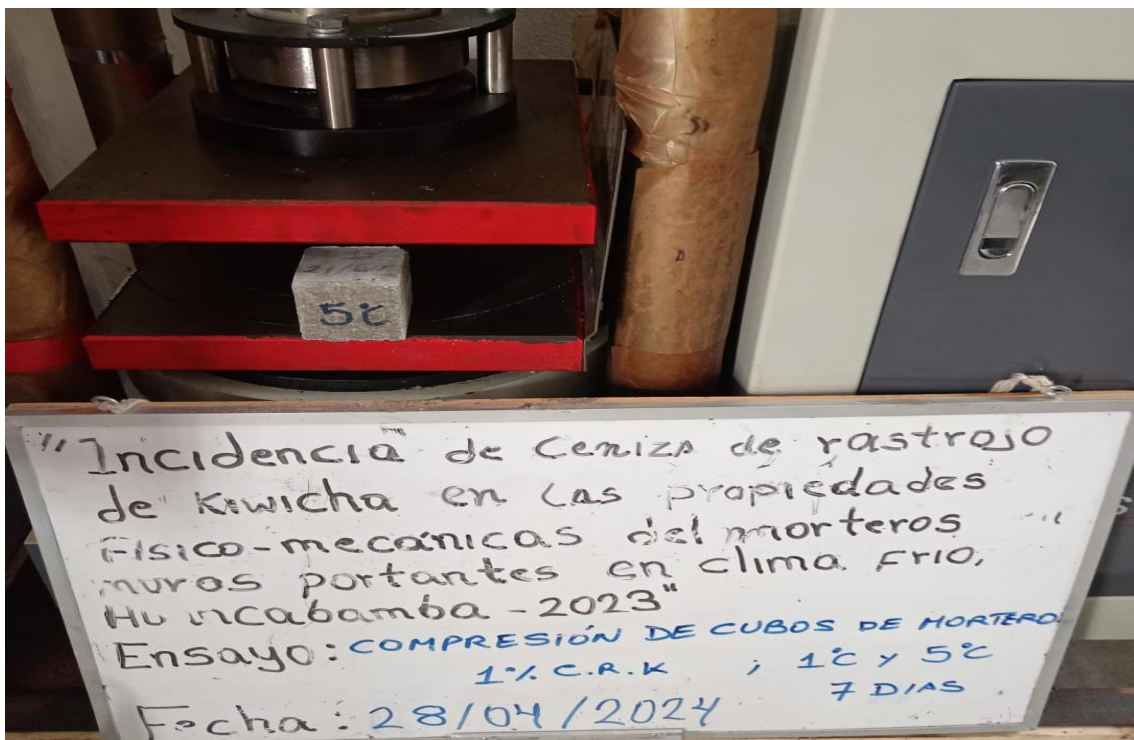 5°C
"Incidencia de Ceniza de rastrojo
de Kiwicha en las propiedades
Físico-mecánicas del morteros
muros portantes en clima Frio,
Huancabamba - 2023"
Ensayo: COMPRESIÓN DE CUBOS DE MORTERO
1% C.R.K ; 1°C y 5°C
7 DIAS
Fecha: 28/04/2024